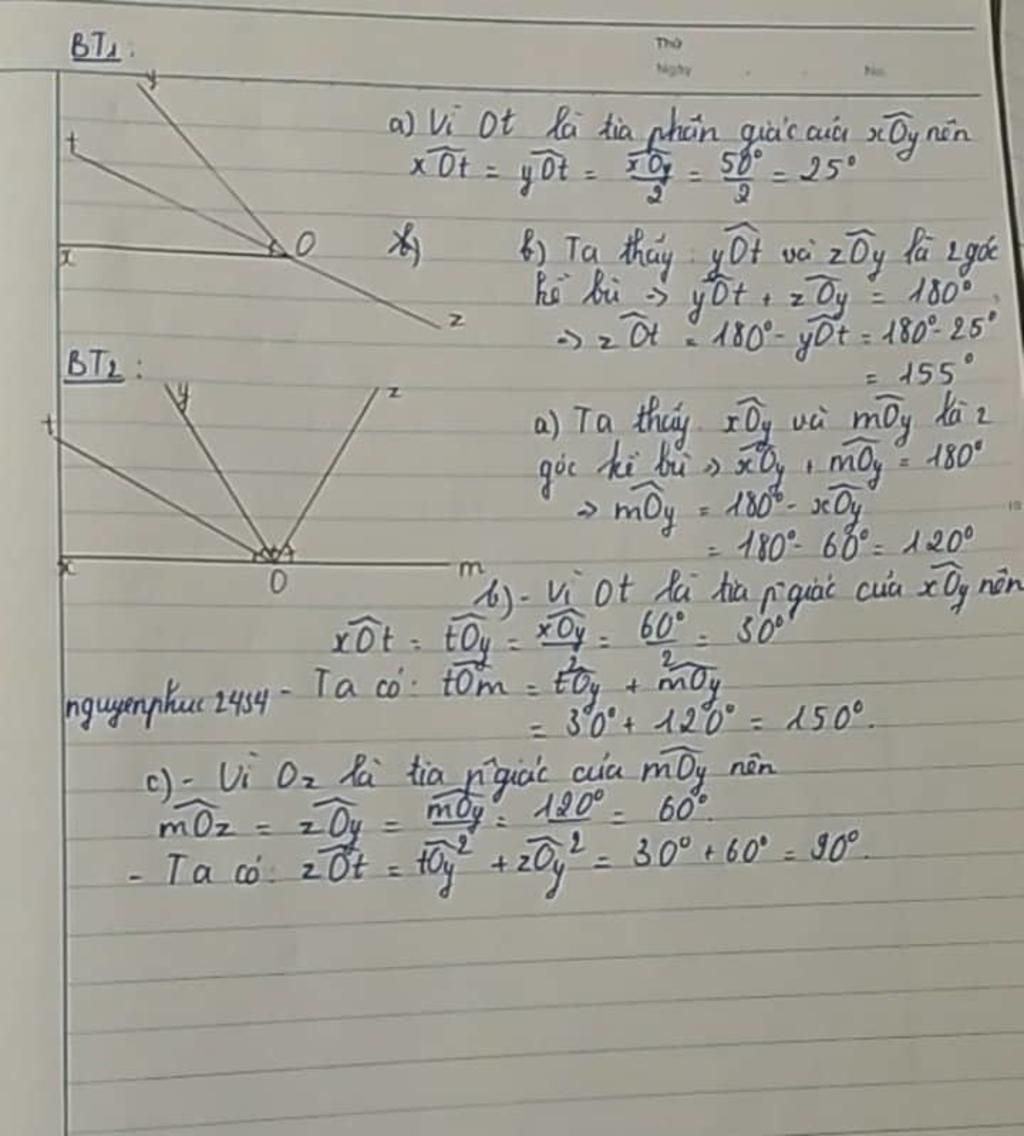 BT1:
Thứ
Ngày . . No.
y
t
x
O
z
a) Vì Ot là tia phân giác của xÔy nên
xÔt = yÔt = xÔy/2 = 50°/2 = 25°
b) Ta thấy: yÔt và zÔy là 2 góc
kề bù -> yÔt + zÔy = 180°
-> zÔt = 180° - yÔt = 180° - 25°
= 155°
BT2:
t
y
z
x
O
m
a) Ta thấy xÔy và mÔy là 2
góc kề bù -> xÔy + mÔy = 180°
-> mÔy = 180° - xÔy
= 180° - 60° = 120°
b) - Vì Ot là tia p giác của xÔy nên
xÔt = tÔy = xÔy/2 = 60°/2 = 30°
nguyenphuc2454 - Ta có: tÔm = tÔy + mÔy
= 30° + 120° = 150°.
c) - Vì Oz là tia p giác của mÔy nên
mÔz = zÔy = mÔy/2 = 120°/2 = 60°.
- Ta có: zÔt = tÔy + zÔy = 30° + 60° = 90°.